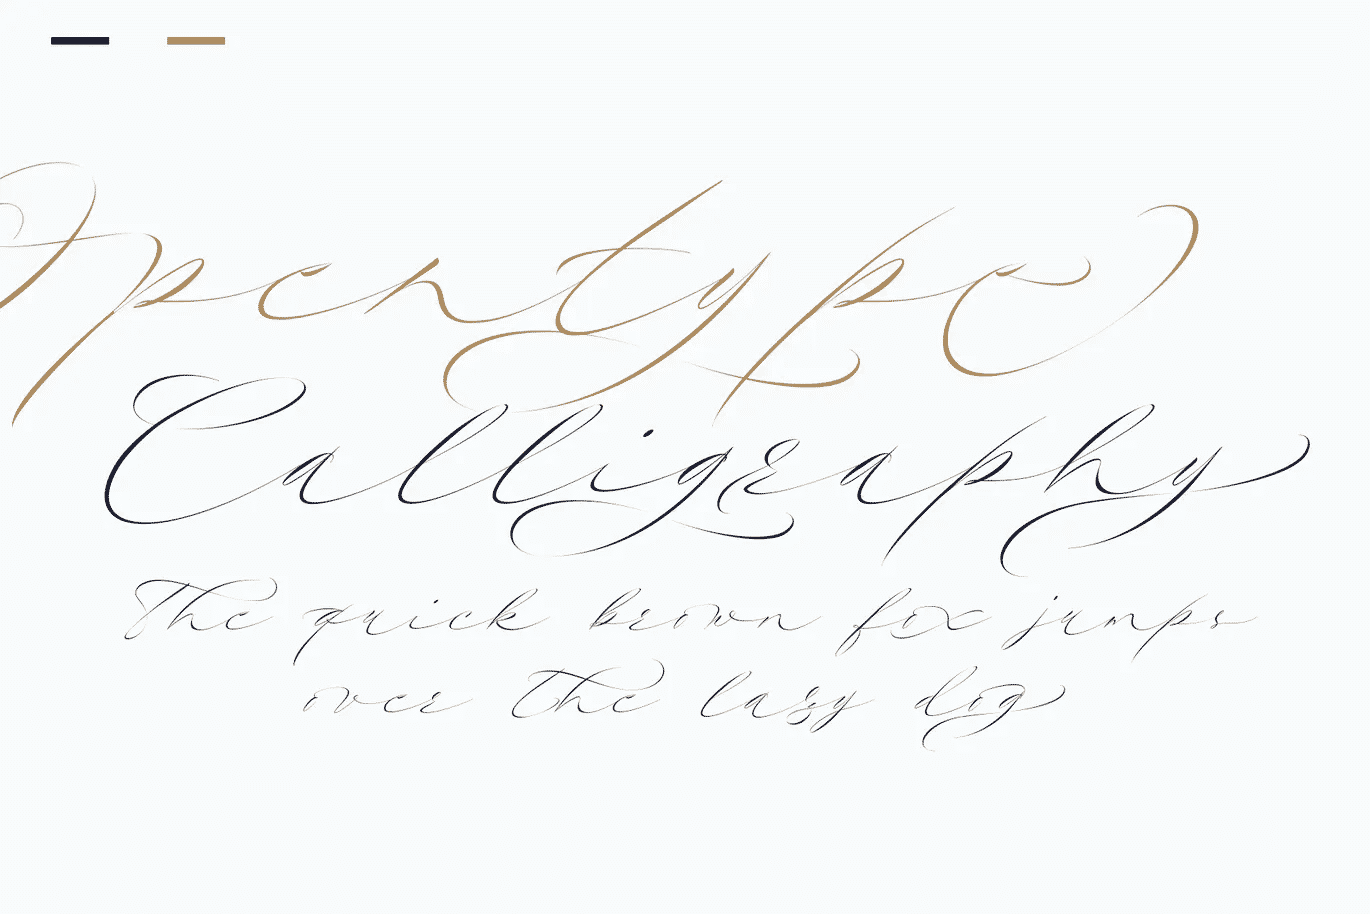 Opentype
Calligraphy
The quick brown fox jumps
over the lazy dog